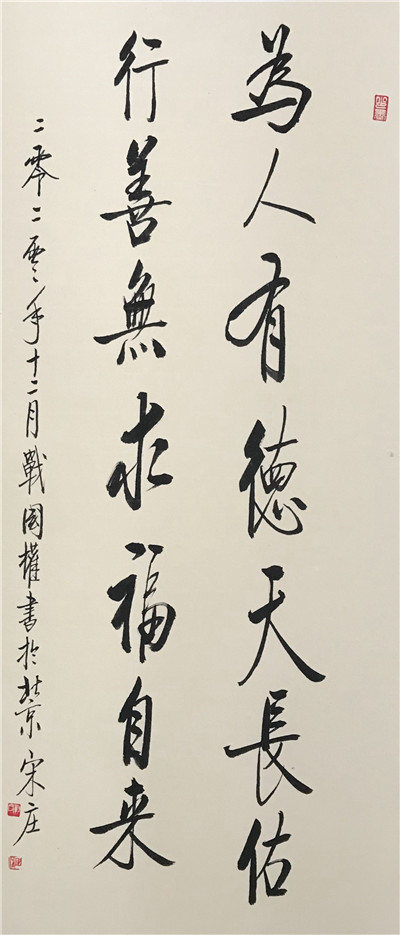 為人有德天長佑
行善無求福自来
二零二零年十二月戰國權書於北京宋庄